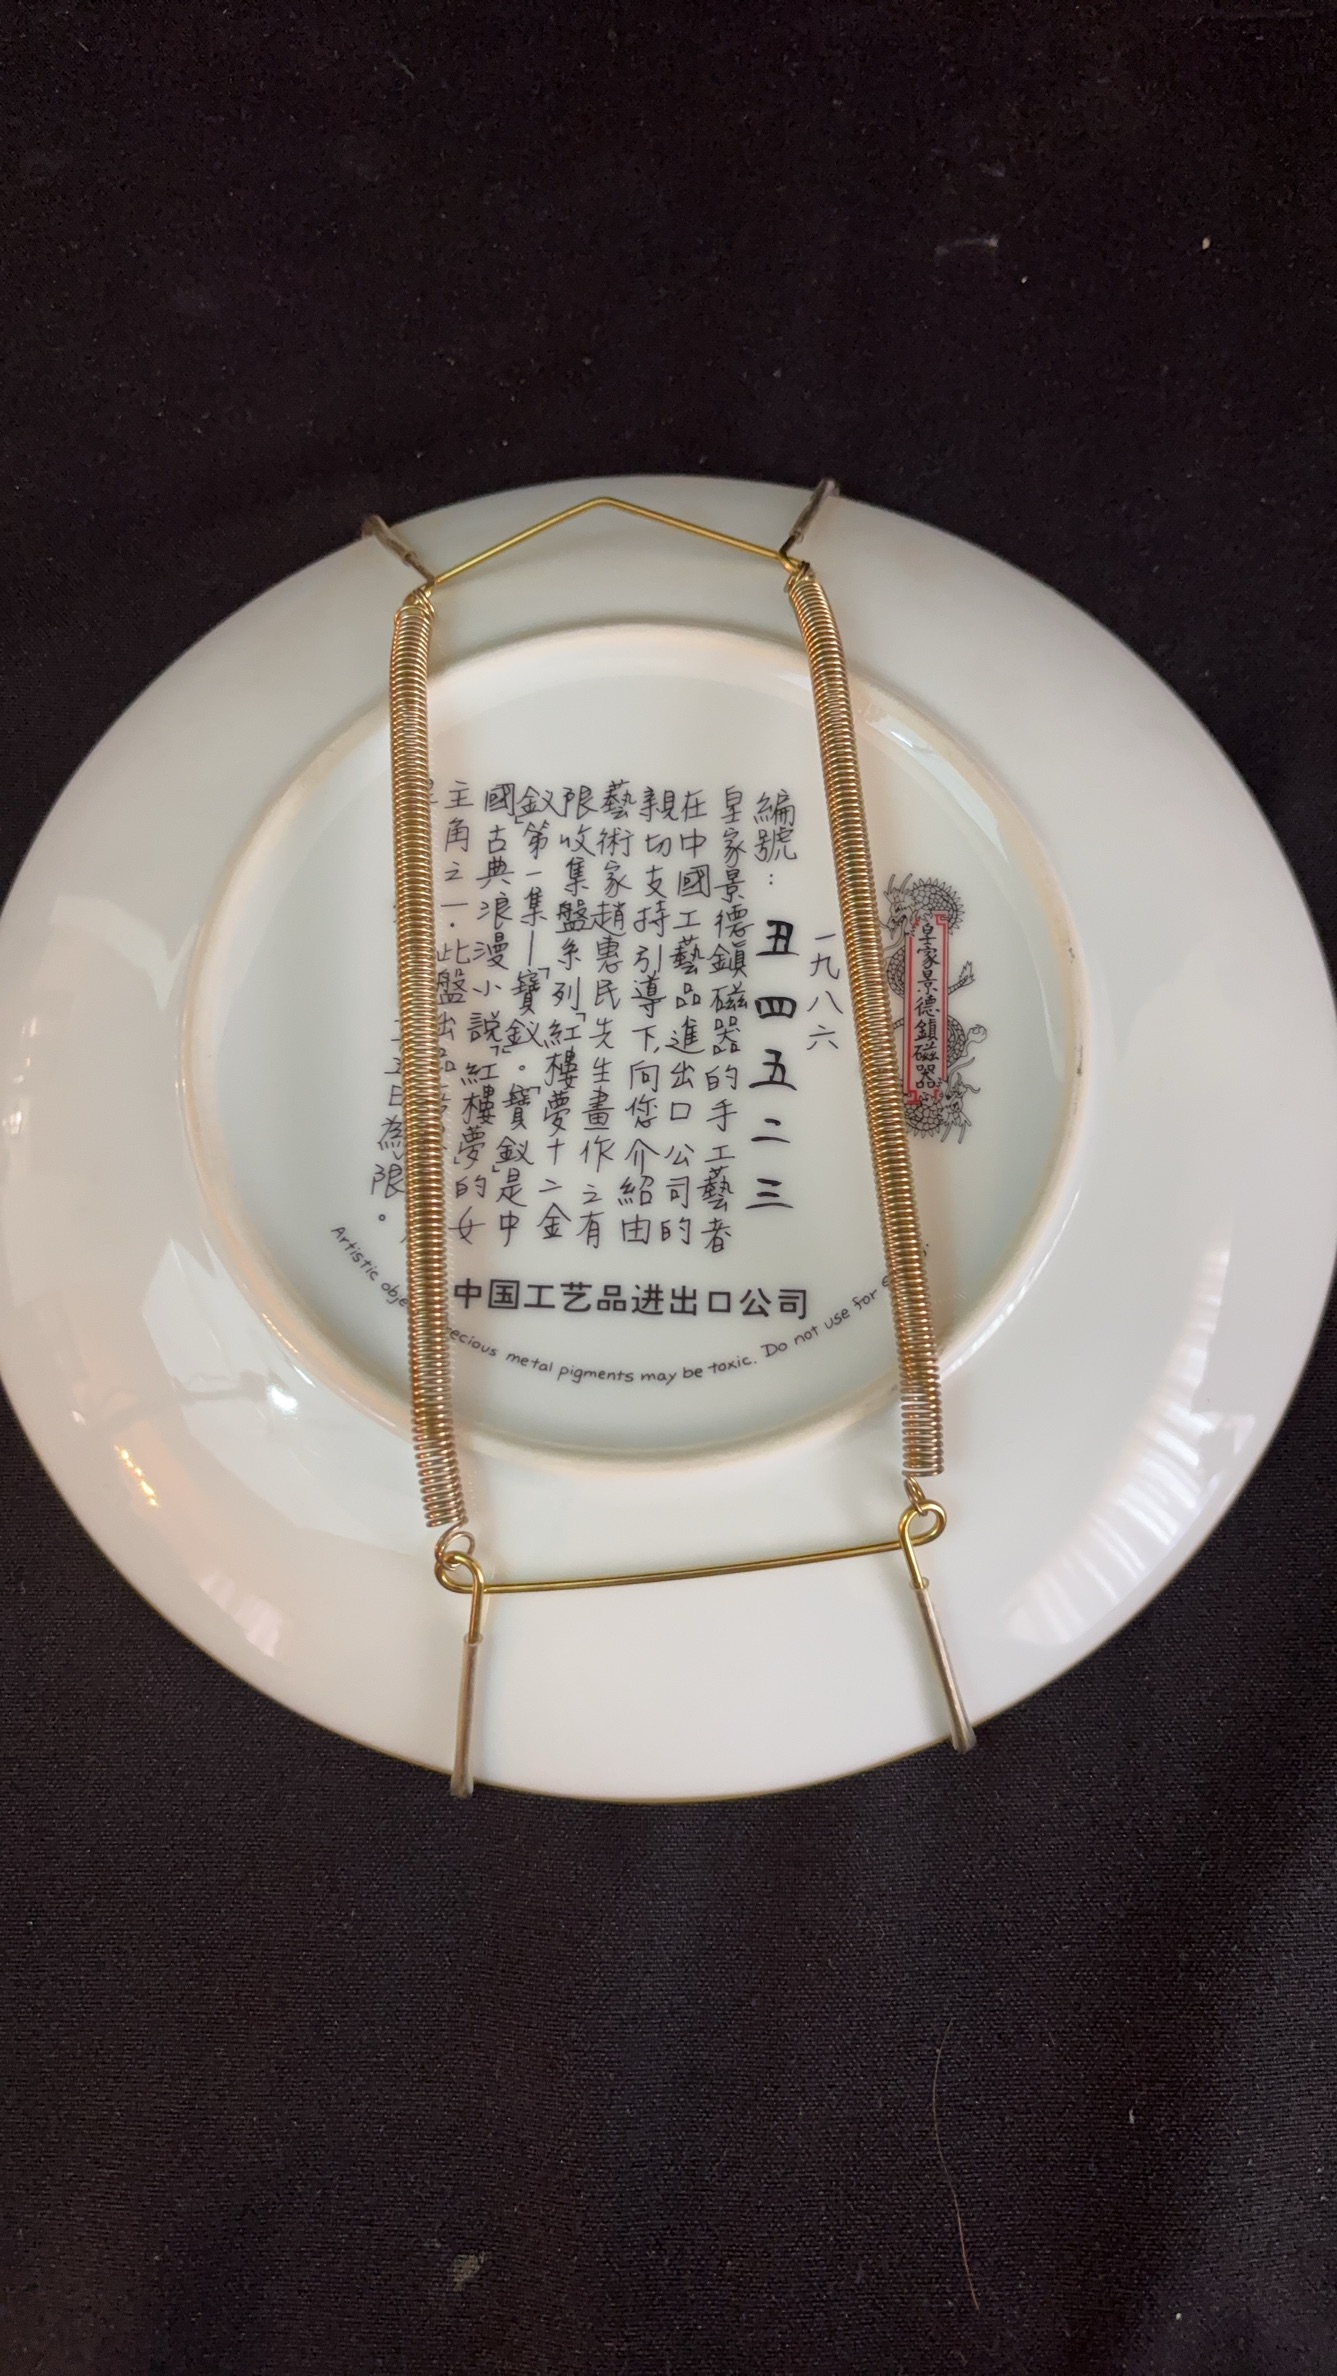 皇家景德鎮磁器
一九八六
編號：丑四五二三
皇家景德鎮磁器的手工藝者
在中國工藝品進出口公司的
親切支持引導下，向您介紹由
藝術家趙惠民先生畫作之有
限收集盤系列「紅樓夢十二金
釵」第一集—「寶釵」。「寶釵」是中
國古典浪漫小說「紅樓夢」的女
主角之一．此盤出品
日為限。
中国工艺品进出口公司
Artistic metal pigments may be toxic. Do not use for